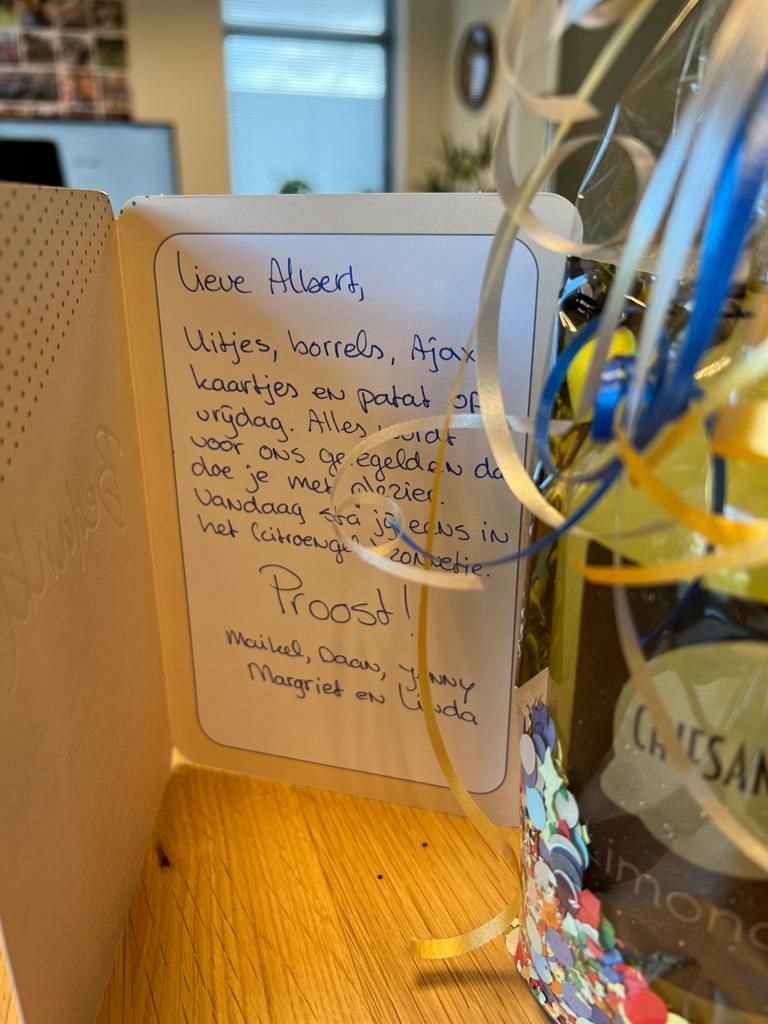 Lieve Albert,
Uitjes, borrels, Ajax
kaartjes en patat op
vrijdag. Alles wordt
voor ons geregeld en da
doe je met plezier.
Vandaag sta jij eens in
het (citroengele) zonnetje.
Proost!
Maikel, Daan, Jenny
Margriet en Linda
Bedankt
CHIESAN
imonc